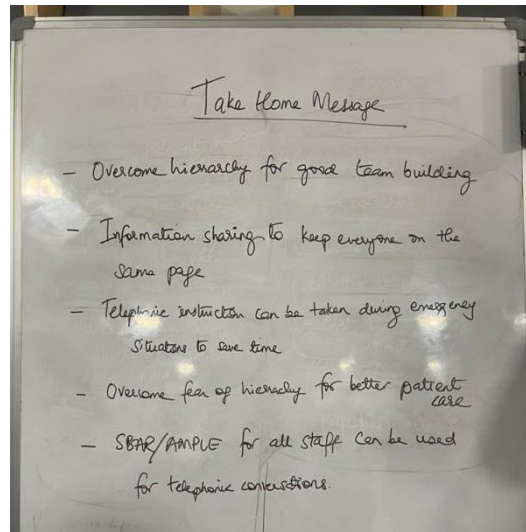 Take Home Message
- Overcome hierarchy for good team building
- Information sharing to keep everyone on the
same page
- Telephonic instruction can be taken during emergency
situations to save time
- Overcome fear of hierachy for better patient
care
- SBAR/AMPLE for all staff can be used
for telephonic conversations.